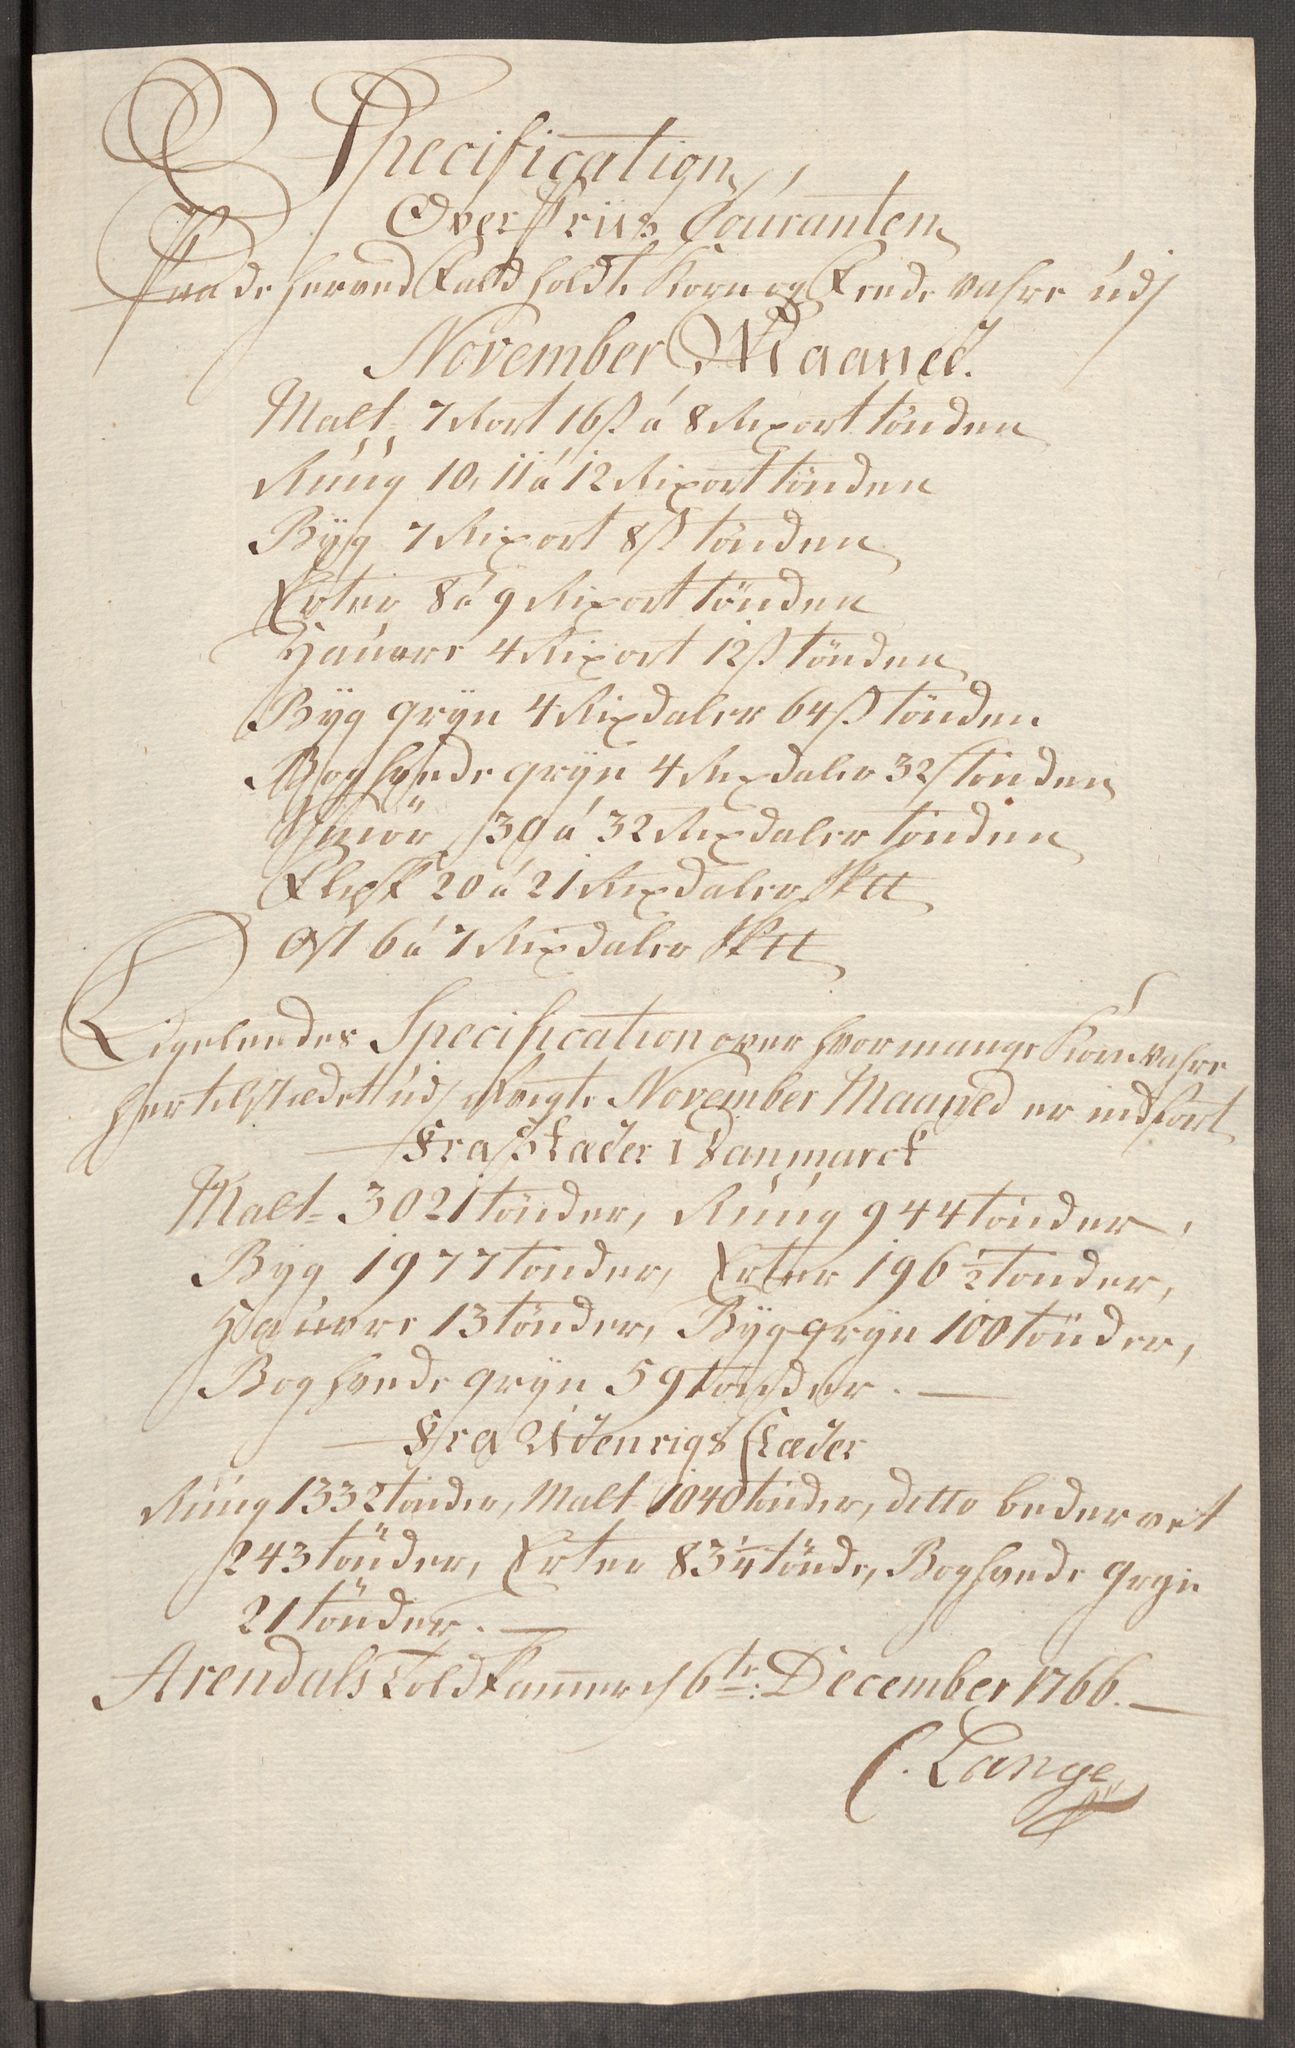 Specification
Over Priis Couranten
Paa de her ved Faldholdte Korn og Fende vahre udj
November Maaned.
Malt 7 Rort 16 s á 8 Rixort tönden
Rúúg 10, 11 á 12 Rixort tönden
Byg 7 Rixort 8 s tönden
Erter 8 á 9 Rixort tönden
Haúvre 4 Rixort 12 s tönden
Byg gryn 4 Rixdaler 64 s tönden
Boghvede gryn 4 Rixdaler 32 s tönden
Smör 30 á 32 Rixdaler tönden
Flesk 20 á 21 Rixdaler Sk℔
Ost 6 á 7 Rixdaler Sk℔
Ligeleedes Specification over hvormange Korn vahre
her til stædet udj November Maaned er indfört
Fra Stæder i Danmarck
Malt 3021 tönder, Rúúg 944 tönder,
Byg 1977 tönder, Erter 196 1/2 tönder,
Haúvre 13 tönder, Byggryn 100 tönder,
Boghvede gryn 59 tönder.
Fra Udenrigs stæder
Rúúg 1332 tönder, Malt 1040 tönder, ditto bedervet
243 tönder, Erter 83 1/4 tönde, Boghvede gryn
21 tönder.
Arendals Toldkammer d 6te: December 1766.
C. Lange